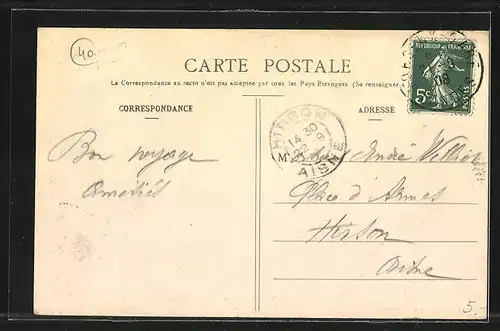 40
CARTE POSTALE
La Correspondance au recto n'est pas acceptée par tous les Pays Etrangers (Se renseigner
CORRESPONDANCE
ADRESSE
REPUBLIQUE FRANÇAISE
5c
POSTES
08
HIRSON
14 30
22
AISNE
Bon voyage
Amitiés
André
Place d'Armes
Hirson
Aisne
5,-